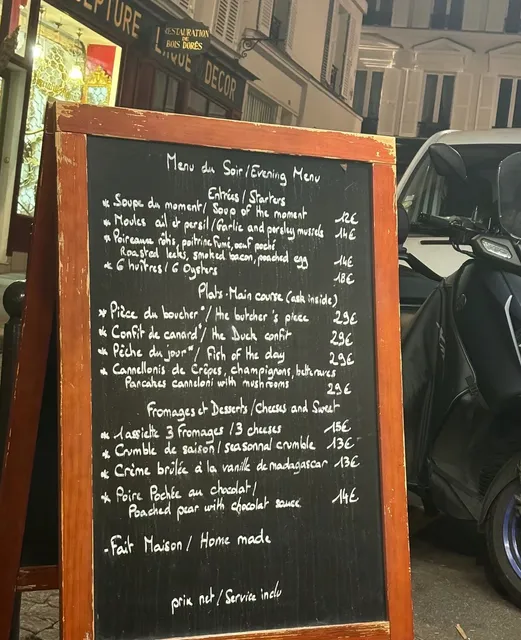 SCULPTURE
RESTAURATION
DE
BOIS DORÉS
DECOR
Menu du Soir/Evening Menu
Entrées/Starters
* Soupe du moment/ Soup of the moment 12€
* Moules ail et persil/Garlic and persley mussels 14€
* Poireaux rôtis, poitrine fumé, oeuf poché
Roasted leeks, smoked bacon, poached egg 14€
* 6 huîtres/ 6 Oysters 18€
Plats-Main course (ask inside)
* Pièce du boucher*/ the butcher's piece 29€
* Confit de canard*/ the Duck confit 29€
* Pêche du jour*/ Fish of the day 29€
* Cannellonis de Crêpes, champignons, betteraves
Pancakes canneloni with mushrooms 29€
Fromages et Desserts/Cheeses and Sweet
* 1 assiette 3 fromages /3 cheeses 15€
* Crumble de saison/ seasonnal crumble 13€
* Crème brûlée à la vanille de madagascar 13€
* Poire Pochée au chocolat/
Poached pear with chocolat sauce 14€
-Fait Maison / Home made
prix net/Service inclu